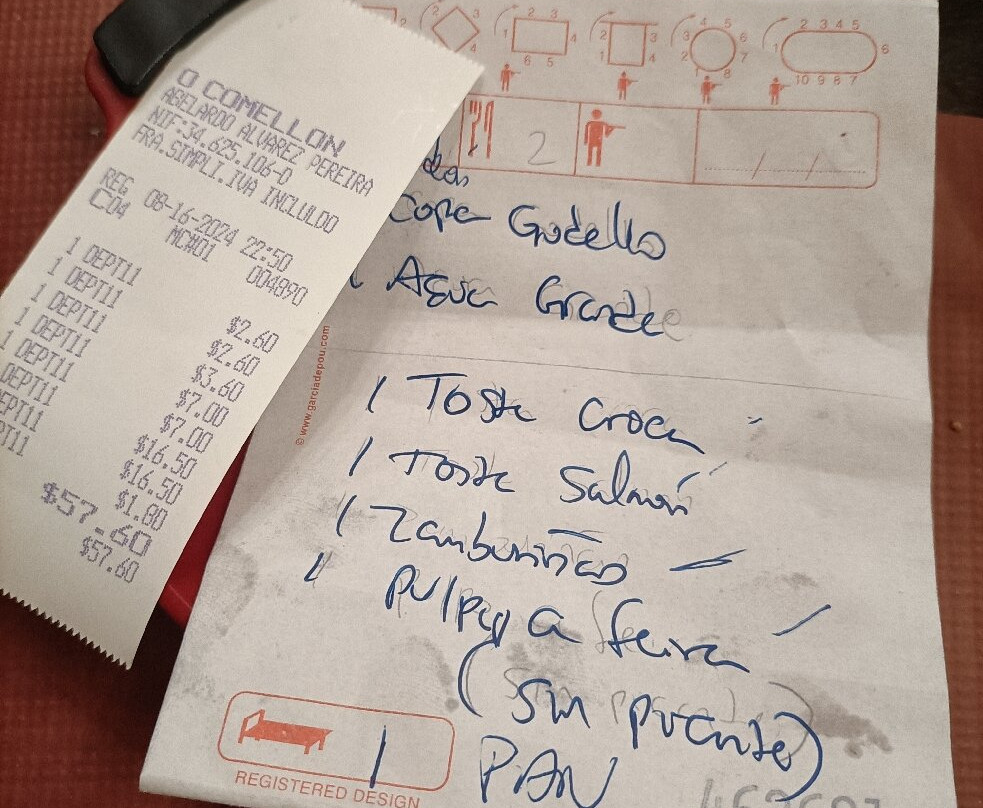 O COMELLON
ABELARDO ALVAREZ PEREIRA
NIF:34.625.106-D
FRA.SIMPLI.IVA INCLUIDO
REG 08-16-2024 22:50
C04 MC#01 004890
1 DEPT11 $2.60
1 DEPT11 $2.60
1 DEPT11 $3.60
1 DEPT11 $7.00
1 DEPT11 $7.00
DEPT11 $16.50
EPT11 $16.50
PT11 $1.80
$57.60
$57.60
2 3 4
1 2 3 4 5 6
1 2 3 4
2 3 4 5 6 7 8
1 2 3 4 5 6 7 8 9 10
2
/ /
Copa Godello
1 Agua Grande
© www.garciadepou.com
1 Tosta Croca
1 Tosta Salmón
1 Zamburiñas
1 Pulpo a feira
(sin picante)
1 PAN
REGISTERED DESIGN